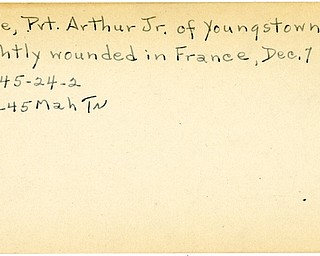 e, Pvt. Arthur Jr. of Youngstown
htly wounded in France, Dec. 7
45-24-2
-45 Mah Tr